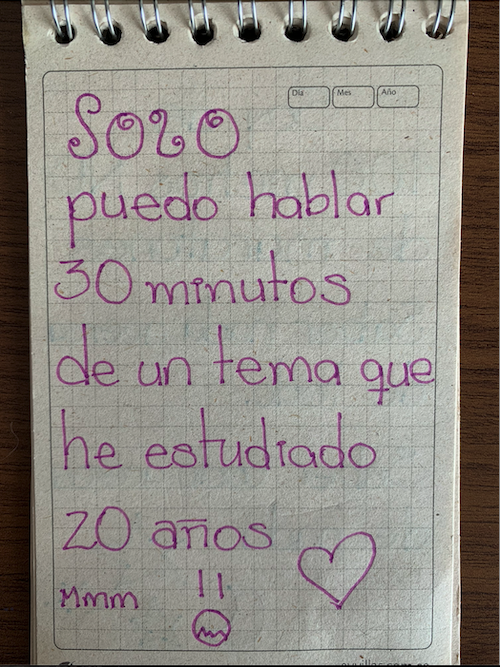 Día Mes Año
Solo
puedo hablar
30 minutos
de un tema que
he estudiado
20 años
Mmm !!